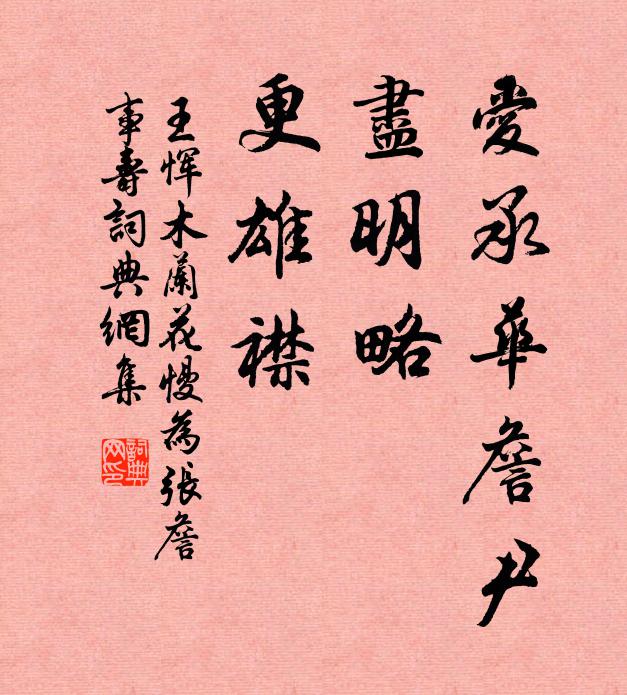 愛承華詹尹
盡明略
更雄襟
王惲木蘭花慢為張詹
事壽詞典網集
詞典網印